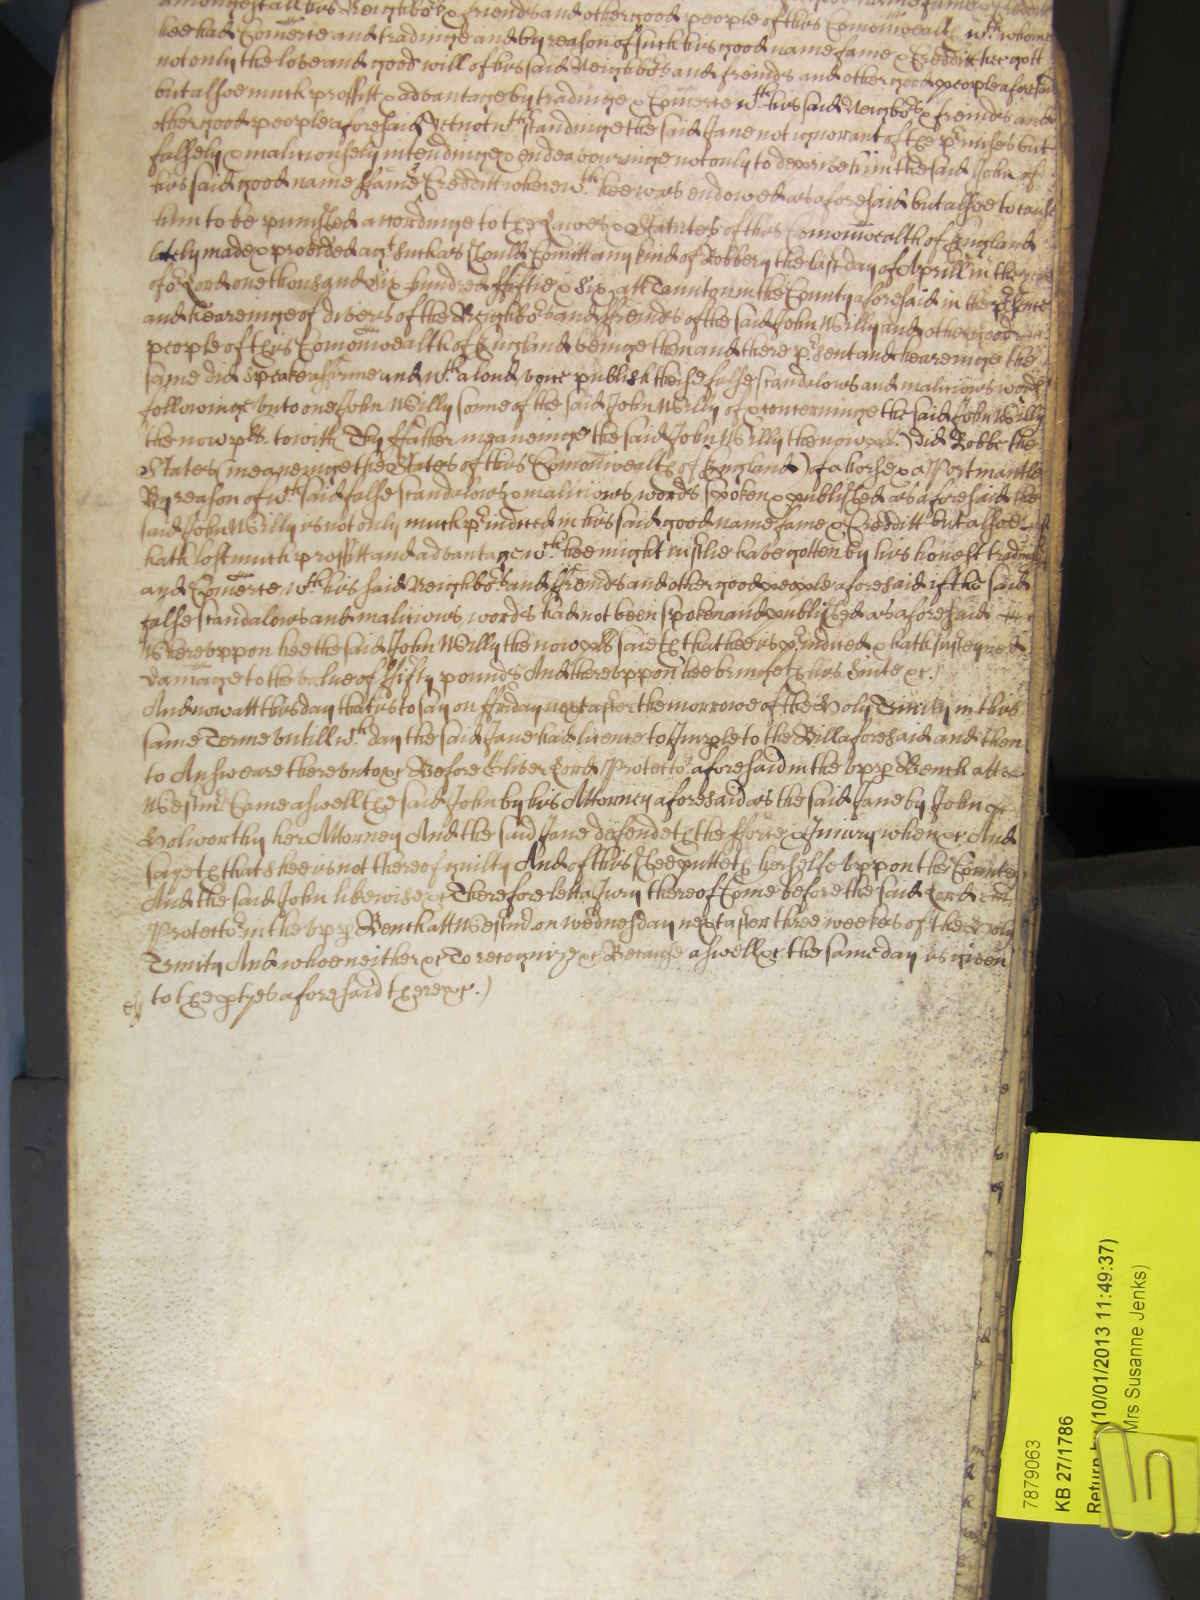 amongest all his Neighbors & freinds and other good people of this Comonwealth wth whome
hee had Comerce and tradinge and by reason of such his good name fame & Creditt hee gott
not only the love and good will of his said Neighbors and freinds and other good people aforesaid
but alsoe much proffitt & advantage by tradinge & Comerce wth his said Neighbors freinds and
other good people aforesaid Yet notwthstandinge the said Jane not ignorant of the prmises but
falsely & maliciously intendinge & endeavouringe not only to deprive him the said John of
his said good name ffame Creditt wherewth hee was endowed as aforesaid but alsoe to cause
him to be punished accordinge to the Lawes & Statutes of this Comonwealth of England
lately made & provided agt such as should Comitt any kind of Robbery the last day of Aprill in the yeare
of or Lord one thousand Six hundred ffiftie & Six att Taunton in the County aforesaid in the prsence
and heareinge of divers of the Neighbors and ffreinds of the said John Willy and other good
people of this Comonwealth of England beinge then and there prsent and heareinge the
same did Speake affirme and wth a loud voice publish these false scandalous and malicious words
followinge unto one John Willy sonne of the said John Willy of & concerninge the said John Willy
the now plt. to witt Thy ffather meaneinge the said John Willy the now plt.) did Robbe the
States (meaneinge the States of this Comonwealth of England) of a horse & a Portmantle
By reason of wch said false scandalous & malicious words spoken & published as aforesaid the
said John Willy is not only much priudiced in his said good name fame & Creditt but alsoe
hath lost much proffitt and advantage wch hee might iustlie have gotten by his honest tradinge
and Comerce wth his said Neighbors and ffreinds and other good people aforesaid if the said
false scandalous and malicious words had not been spoken and published as aforesaid
Whereuppon hee the said John Willy the now plt saieth that hee is priudiced & hath susteyned
damage to the value of ffifty pounds And thereuppon hee bringeth his Suite &c.)
And now att this day that is to say on ffriday next after the morrowe of the Holy Trinity in this
same Terme untill wch day the said Jane had licence to Imparle to the Bill aforesaid and then
to Answeare thereunto &c Before Oliver Lord Protector aforesaid in the upp Bench att
Westmr Came aswell the said John by his Attorney aforesaid as the said Jane by John
Holworthy her Attorney And the said Jane defendeth the fforce & Iniury when &c And
sayeth that shee is not thereof guilty And of this shee putteth herselfe uppon the Countrey
And the said John likewise &c Therefore lett a Jury thereof Come before the said Lord
Protector in the upp Bench att Westmr on wednesday next after three weekes of the Holy
Trinity And whoe neither &c To recognize &c Because aswell &c the same day is given
to the ptyes aforesaid there &c.)
7879063
KB 27/1786
Return by (10/01/2013 11:49:37)
Mrs Susanne Jenks)